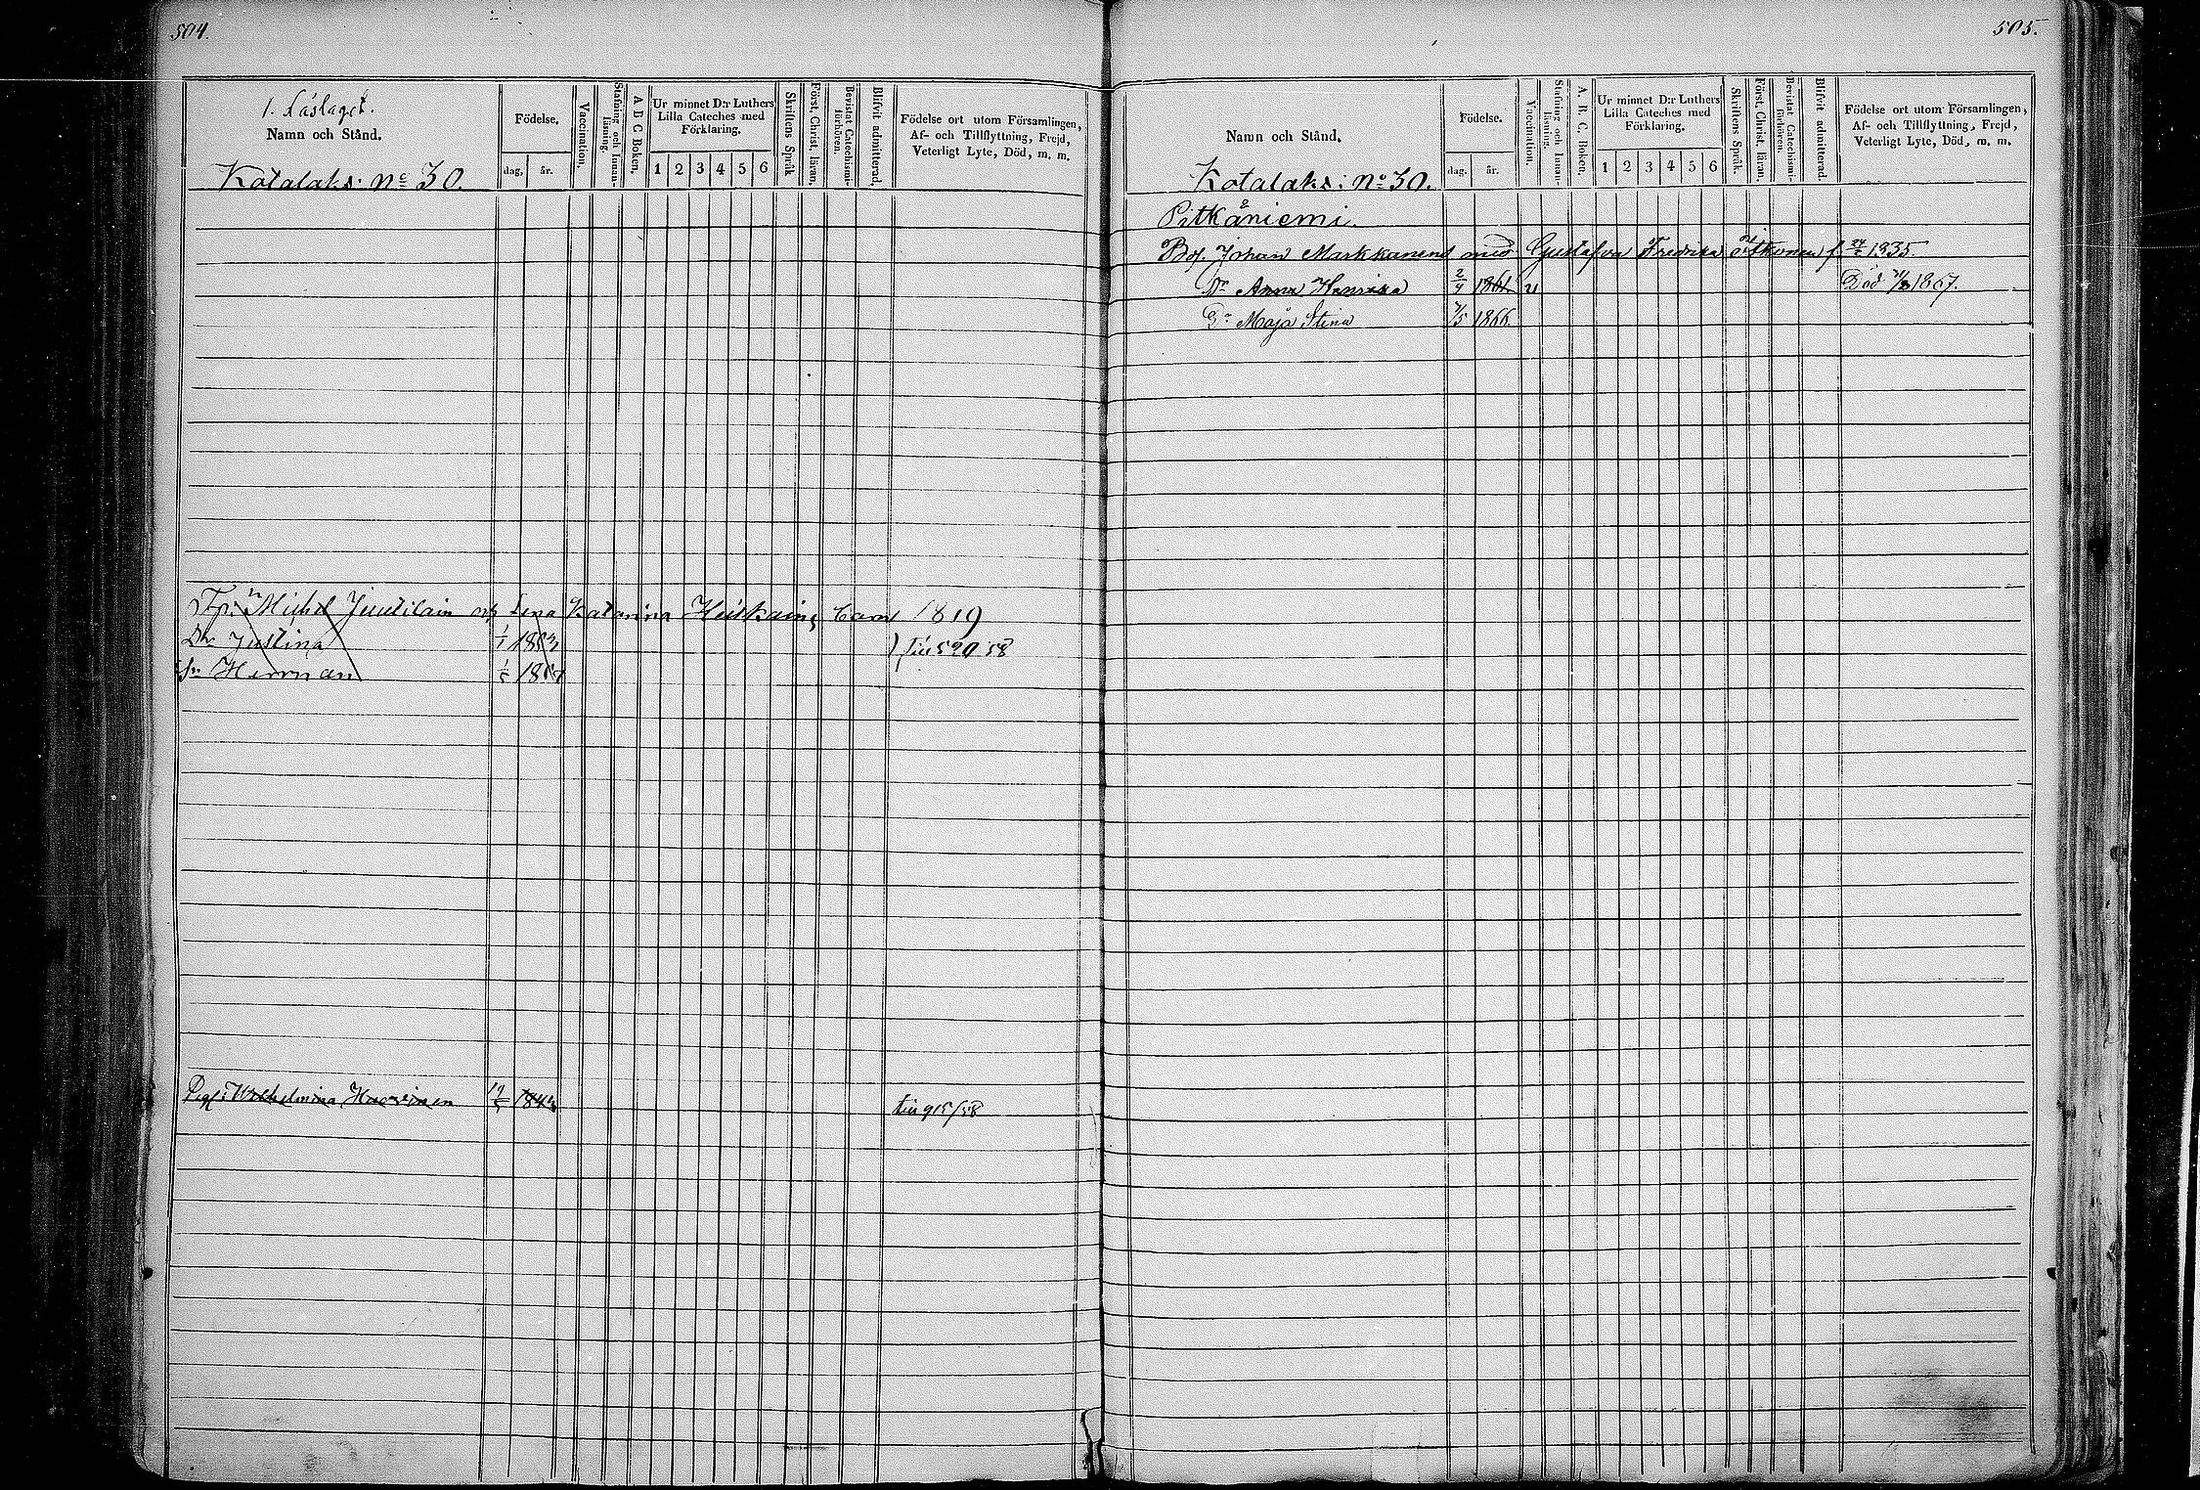 504.
1. Läslaget.
Namn och Stånd.
Kotalaks: No 30.
Födelse.
dag. år.
Vaccination.
Stafning och Innanläsning.
A B C Boken.
Ur minnet D:r Luthers
Lilla Cateches med
Förklaring.
1 2 3 4 5 6
Skriftens Språk
Först. Christ. läran.
Bevistat Catechismiförhören.
Blifvit admitterad.
Födelse ort utom Församlingen,
Af- och Tillflyttning, Frejd,
Veterligt Lyte, Död, m. m.
Michel Juutilain och Lena Katarina Barn 1819
Dr Justina 1/1
Sn Herman
till 590 58
Pig: Wilhelmina 1843 till 915/58
505.
Namn och Stånd.
Kotalaks: No 30.
Födelse.
dag. år.
Vaccination.
Stafning och Innanläsning.
A. B. C. Boken.
Ur minnet D:r Luthers
Lilla Cateches med
Förklaring.
1 2 3 4 5 6
Skriftens Språk.
Först. Christ. läran.
Bevistat Catechismiförhören.
Blifvit admitterad.
Födelse ort utom Församlingen,
Af- och Tillflyttning, Frejd,
Veterligt Lyte, Död, m. m.
Pitkäniemi.
Johan Markkanen med Gustafva Fredrika Itkonen f. 1835.
Dr Anna Henrika 2/9 1861 v Död 1867.
Dr Maja Stina 7/5 1866